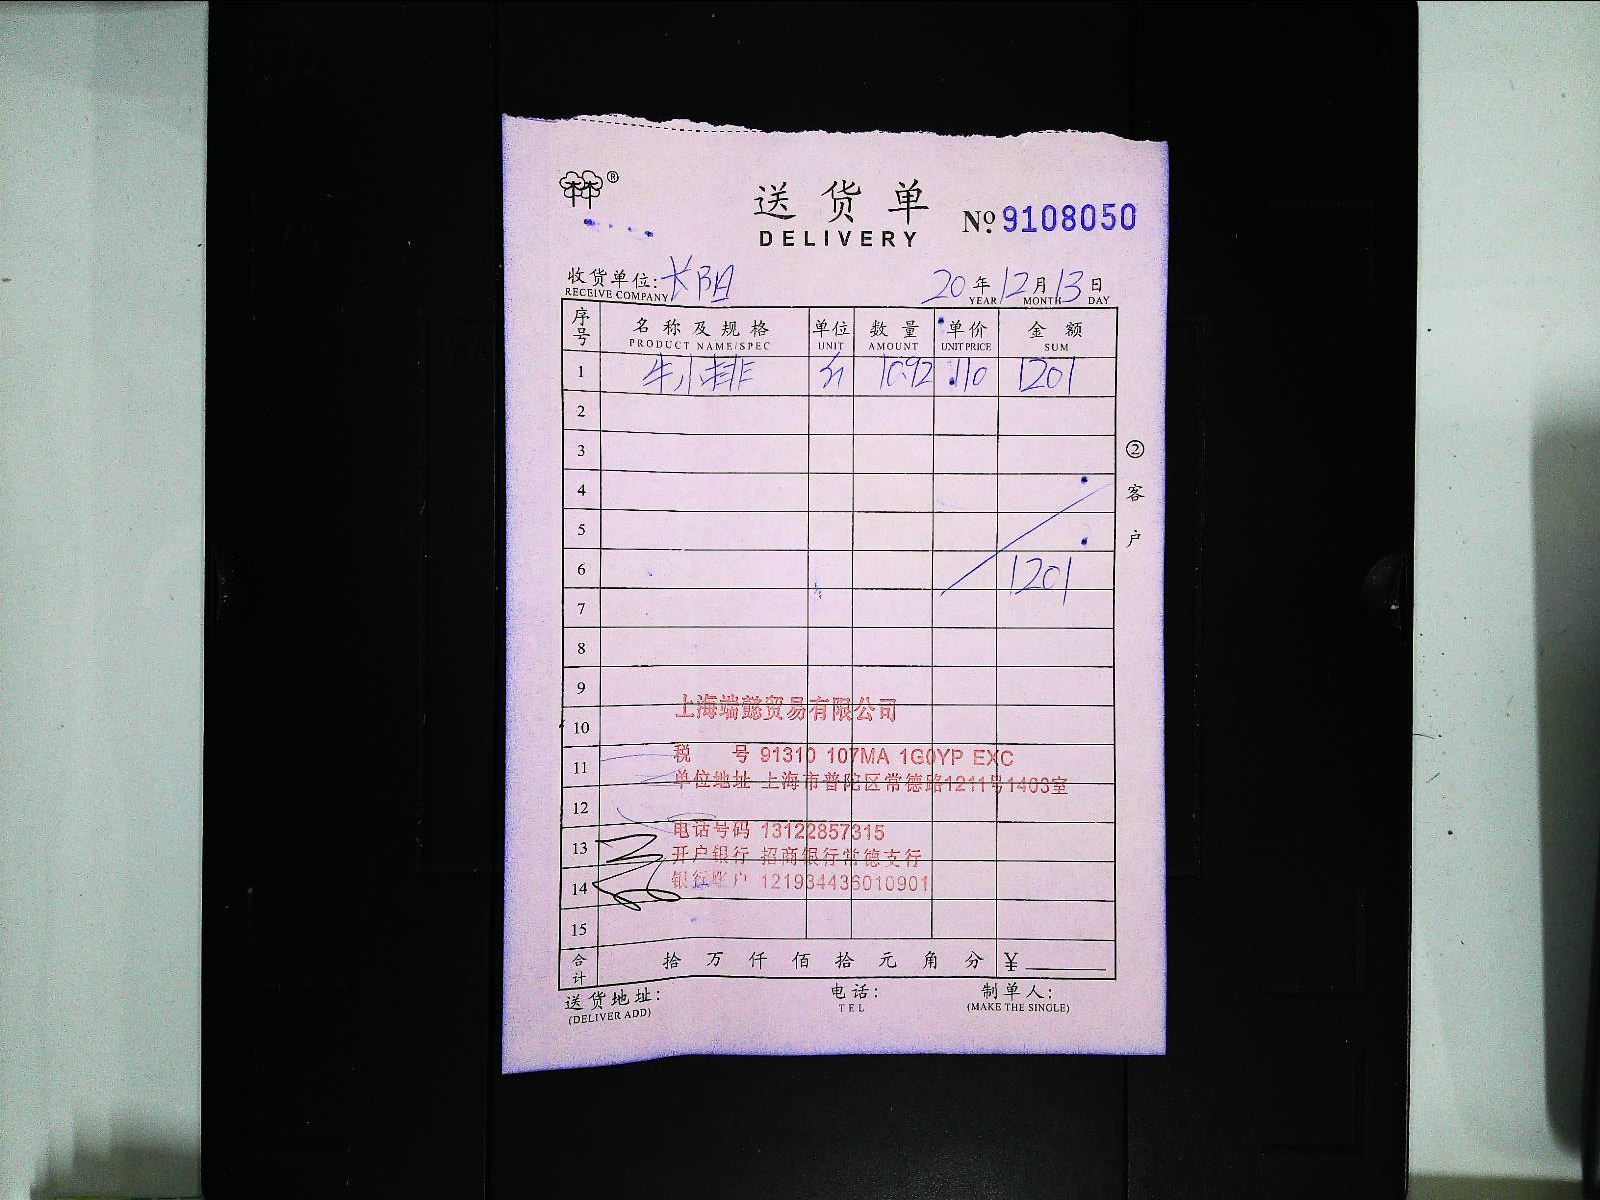 ®
送货单
DELIVERY
№ 9108050
收货单位: 长阳 20年12月13日
RECEIVE COMPANY YEAR MONTH DAY
序号 名称及规格 单位 数量 单价 金额
PRODUCT NAME/SPEC UNIT AMOUNT UNIT PRICE SUM
1 牛小排 斤 10.92 110 1201
2
3
4
5
6 1201
7
8
9
10
11
12
13
14
15
② 客户
上海端懿贸易有限公司
税 号 91310 107MA 1G0YP EXC
单位地址 上海市普陀区常德路1211号1403室
电话号码 13122857315
开户银行 招商银行常德支行
银行账户 121934436010901
合计 拾万仟佰拾元角分 ¥
送货地址: 电话: 制单人:
(DELIVER ADD) TEL (MAKE THE SINGLE)